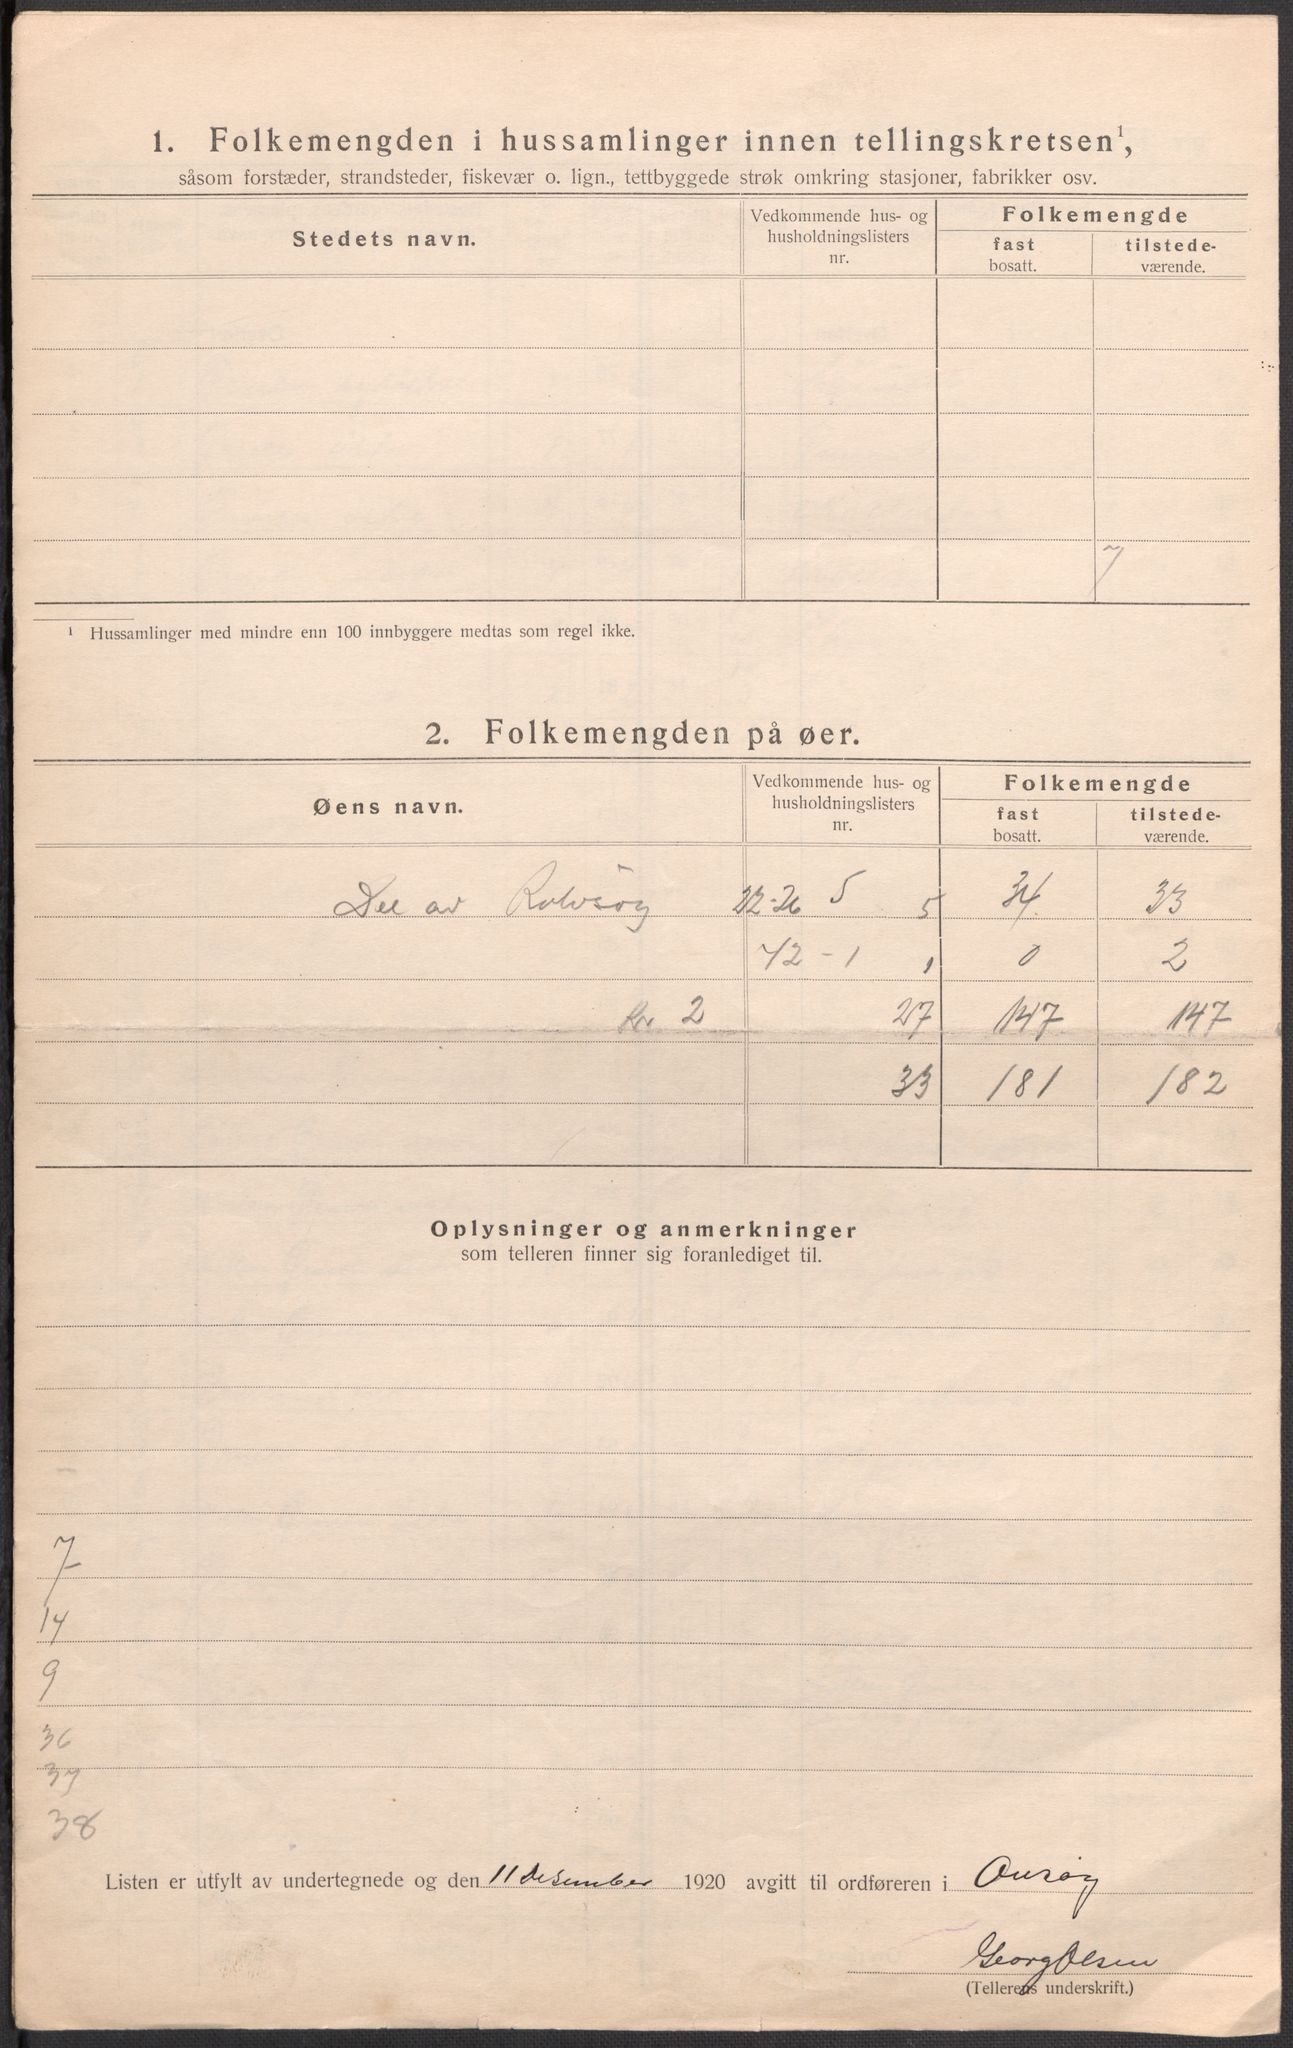 1. Folkemengden i hussamlinger innen tellingskretsen¹,
såsom forstæder, strandsteder, fiskevær o. lign., tettbyggede strøk omkring stasjoner, fabrikker osv.
Stedets navn.
Vedkommende hus- og
husholdningslisters
nr.
Folkemengde
fast
bosatt.
tilstede-
værende.
7
¹ Hussamlinger med mindre enn 100 innbyggere medtas som regel ikke.
2. Folkemengden på øer.
Øens navn.
Vedkommende hus- og
husholdningslisters
nr.
Folkemengde
fast
bosatt.
tilstede-
værende.
Del av Rolvsøy 22-26 5 5 34 33
42 - 1 1 0 2
kr. 2 27 147 147
33 181 182
Oplysninger og anmerkninger
som telleren finner sig foranlediget til.
7
14
9
36
37
38
Listen er utfylt av undertegnede og den 11 Desember 1920 avgitt til ordføreren i Onsøy
Georg Olsen
(Tellerens underskrift.)